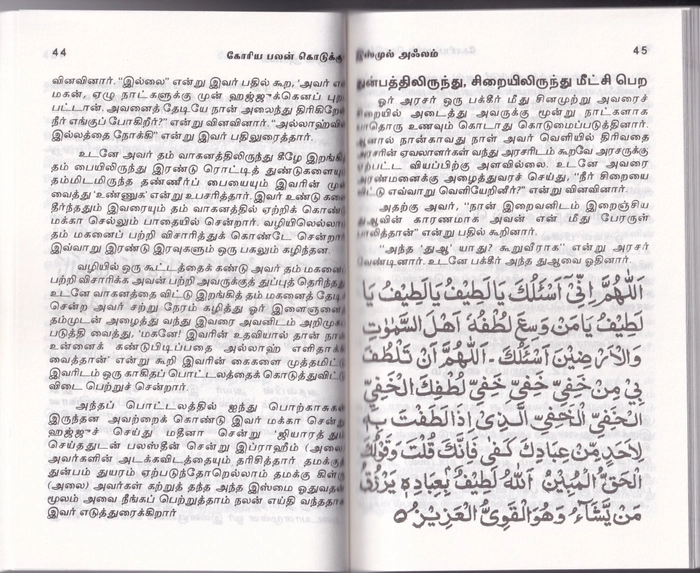 44
கோரிய பலன் கொடுக்கு
வினவினார். "இல்லை" என்று இவர் பதில் கூற, 'அவர் எ
மகன், ஏழு நாட்களுக்கு முன் ஹஜ்ஜுக்கெனப் புற
பட்டான். அவனைத் தேடியே நான் அலைந்து திரிகிறே
நீர் எங்குப் போகிறீர்?" என்று வினவினார். "அல்லாஹ்வி
இல்லத்தை நோக்கி" என்று இவர் பதிலுரைத்தார்.
உடனே அவர் தம் வாகனத்திலிருந்து கீழே இறங்கி
தம் பையிலிருந்து இரண்டு ரொட்டித் துண்டுகளையும்
தம்மிடமிருந்த தண்ணீர்ப் பையையும் இவரின் முன்
வைத்து 'உண்ணுக' என்று உபசரித்தார். இவர் உண்டு களை
தீர்ந்ததும் இவரையும் தம் வாகனத்தில் ஏற்றிக் கொண்டு
மக்கா செல்லும் பாதையில் சென்றார். வழியிலெல்லாம்
தம் மகனைப் பற்றி விசாரித்துக் கொண்டே சென்றார்
இவ்வாறு இரண்டு இரவுகளும் ஒரு பகலும் கழிந்தன.
வழியில் ஒரு கூட்டத்தைக் கண்டு அவர் தம் மகனை
பற்றி விசாரிக்க அவன் பற்றி அவருக்குத் துப்புத் தெரிந்தது
உடனே வாகனத்தை விட்டு இறங்கித் தம் மகனைத் தேடி
சென்ற அவர் சற்று நேரம் கழித்து ஓர் இளைஞனை
தம்முடன் அழைத்து வந்து இவரை அவனிடம் அறிமுக
படுத்தி வைத்து, 'மகனே! இவரின் உதவியால் தான் நான்
உன்னைக் கண்டுபிடிப்பதை அல்லாஹ் எளிதாக்கி
வைத்தான்' என்று கூறி இவரின் கைகளை முத்தமிட்டு
இவரிடம் ஒரு காகிதப் பொட்டலத்தைக் கொடுத்துவிட்டு
விடை பெற்றுச் சென்றார்.
அந்தப் பொட்டலத்தில் ஐந்து பொற்காசுகள்
இருந்தன அவற்றைக் கொண்டு இவர் மக்கா சென்று
ஹஜ்ஜுச் செய்து மதீனா சென்று 'ஜியாரத்
செய்ததுடன் பலஸ்தீன் சென்று இப்ராஹீம் (அலை)
அவர்களின் அடக்கவிடத்தையும் தரிசித்தார் தமக்குத்
துன்பம் துயரம் ஏற்படுந்தோறெல்லாம் தமக்கு
(அலை) அவர்கள் கற்றுத் தந்த அந்த இஸ்மை ஓதுவதன்
மூலம் அவை நீங்கப் பெற்றுத்தாம் நலன் எய்தி வந்ததாக
இவர் எடுத்துரைக்கிறார்
இஸ்முல் அஃலம்
45
துன்பத்திலிருந்து, சிறையிலிருந்து மீட்சி பெற
ஓர் அரசர் ஒரு பக்கீர் மீது சினமுற்று அவரைச்
சிறையில் அடைத்து அவருக்கு மூன்று நாட்களாக
யாதொரு உணவும் கொடாது கொடுமைப்படுத்தினார்.
ஆனால் நான்காவது நாள் அவர் வெளியில் திரிவதை
அரசரின் ஏவலாளர்கள் வந்து அரசரிடம் கூறவே அரசருக்கு
ஏற்பட்ட வியப்பிற்கு அளவில்லை. உடனே அவரை
அரண்மனைக்கு அழைத்துவரச் செய்து, "நீர் சிறையை
விட்டு எவ்வாறு வெளியேறினீர்?" என்று வினவினார்.
அதற்கு அவர், "நான் இறைவனிடம் இறைஞ்சிய
துஆவின் காரணமாக அவன் என் மீது பேரருள்
பாலித்தான்" என்று பதில் கூறினார்.
"அந்த 'துஆ' யாது? கூறுவீராக" என்று அரசர்
வேண்டினார். உடனே பக்கீர் அந்த துஆவை ஓதினார்.
اَللّٰهُمَّ اِنِّىْ اَسْئَلُكَ يَا لَطِيْفُ يَا لَطِيْفُ يَا
لَطِيْفُ يَا مَنْ وَسِعَ لُطْفُهٗ اَهْلَ السَّمٰوٰتِ
وَالْاَرْضِيْنَ اَسْئَلُكَ ـ اَللّٰهُمَّ اَنْ تَلْطُفَ
بِىْ مِنْ خَفِىِّ خَفِىِّ خَفِىِّ لُطْفِكَ الْخَفِىِّ
الْخَفِىِّ الْخَفِىِّ الَّذِىْ اِذَا لَطَفْتَ بِهٖ
لِاَحَدٍ مِّنْ عِبَادِكَ كَفٰى فَاِنَّكَ قُلْتَ وَقَوْلُكَ
الْحَقُّ الْمُبِيْنُ اَللّٰهُ لَطِيْفٌ بِعِبَادِهٖ يَرْزُقُ
مَنْ يَّشَآءُ وَهُوَ الْقَوِىُّ الْعَزِيْزُ ○